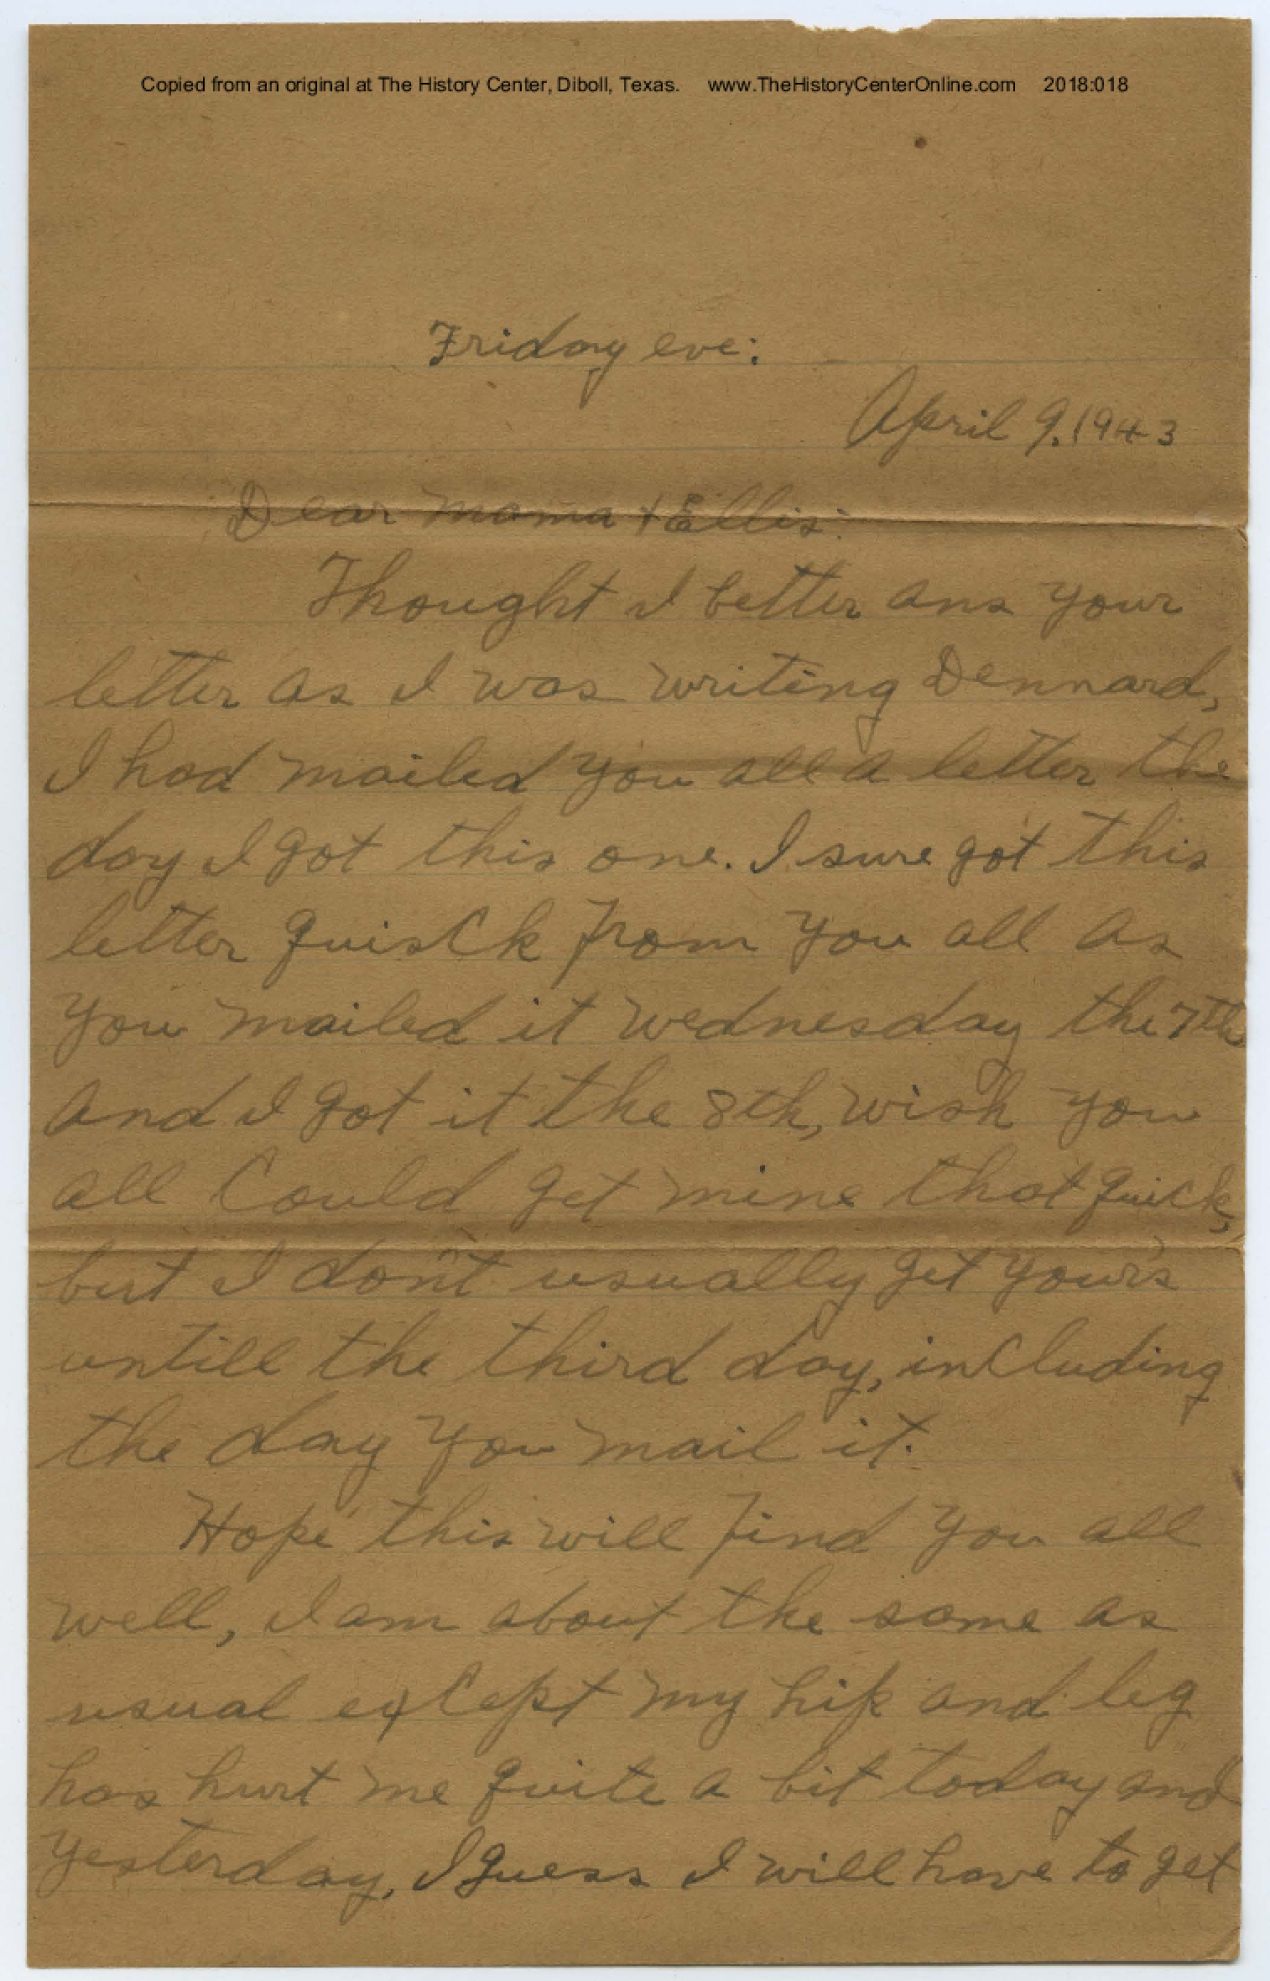 Copied from an original at The History Center, Diboll, Texas. www.TheHistoryCenterOnline.com 2018:018
Friday eve:
April 9, 1943
Dear Mama + Ellis:
Thought I better ans your
letter as I was writing Dennard,
I had mailed you all a letter the
day I got this one. I sure got this
letter quisck from you all as
you mailed it wednesday the 7th
and I got it the 8th, wish you
all Could get mine that quick,
but I don't usually get your's
untill the third day, including
the day you mail it.
Hope this will find you all
well, I am about the same as
usual except my hip and leg
has hurt me quite a bit today and
yesterday, I guess I will have to get